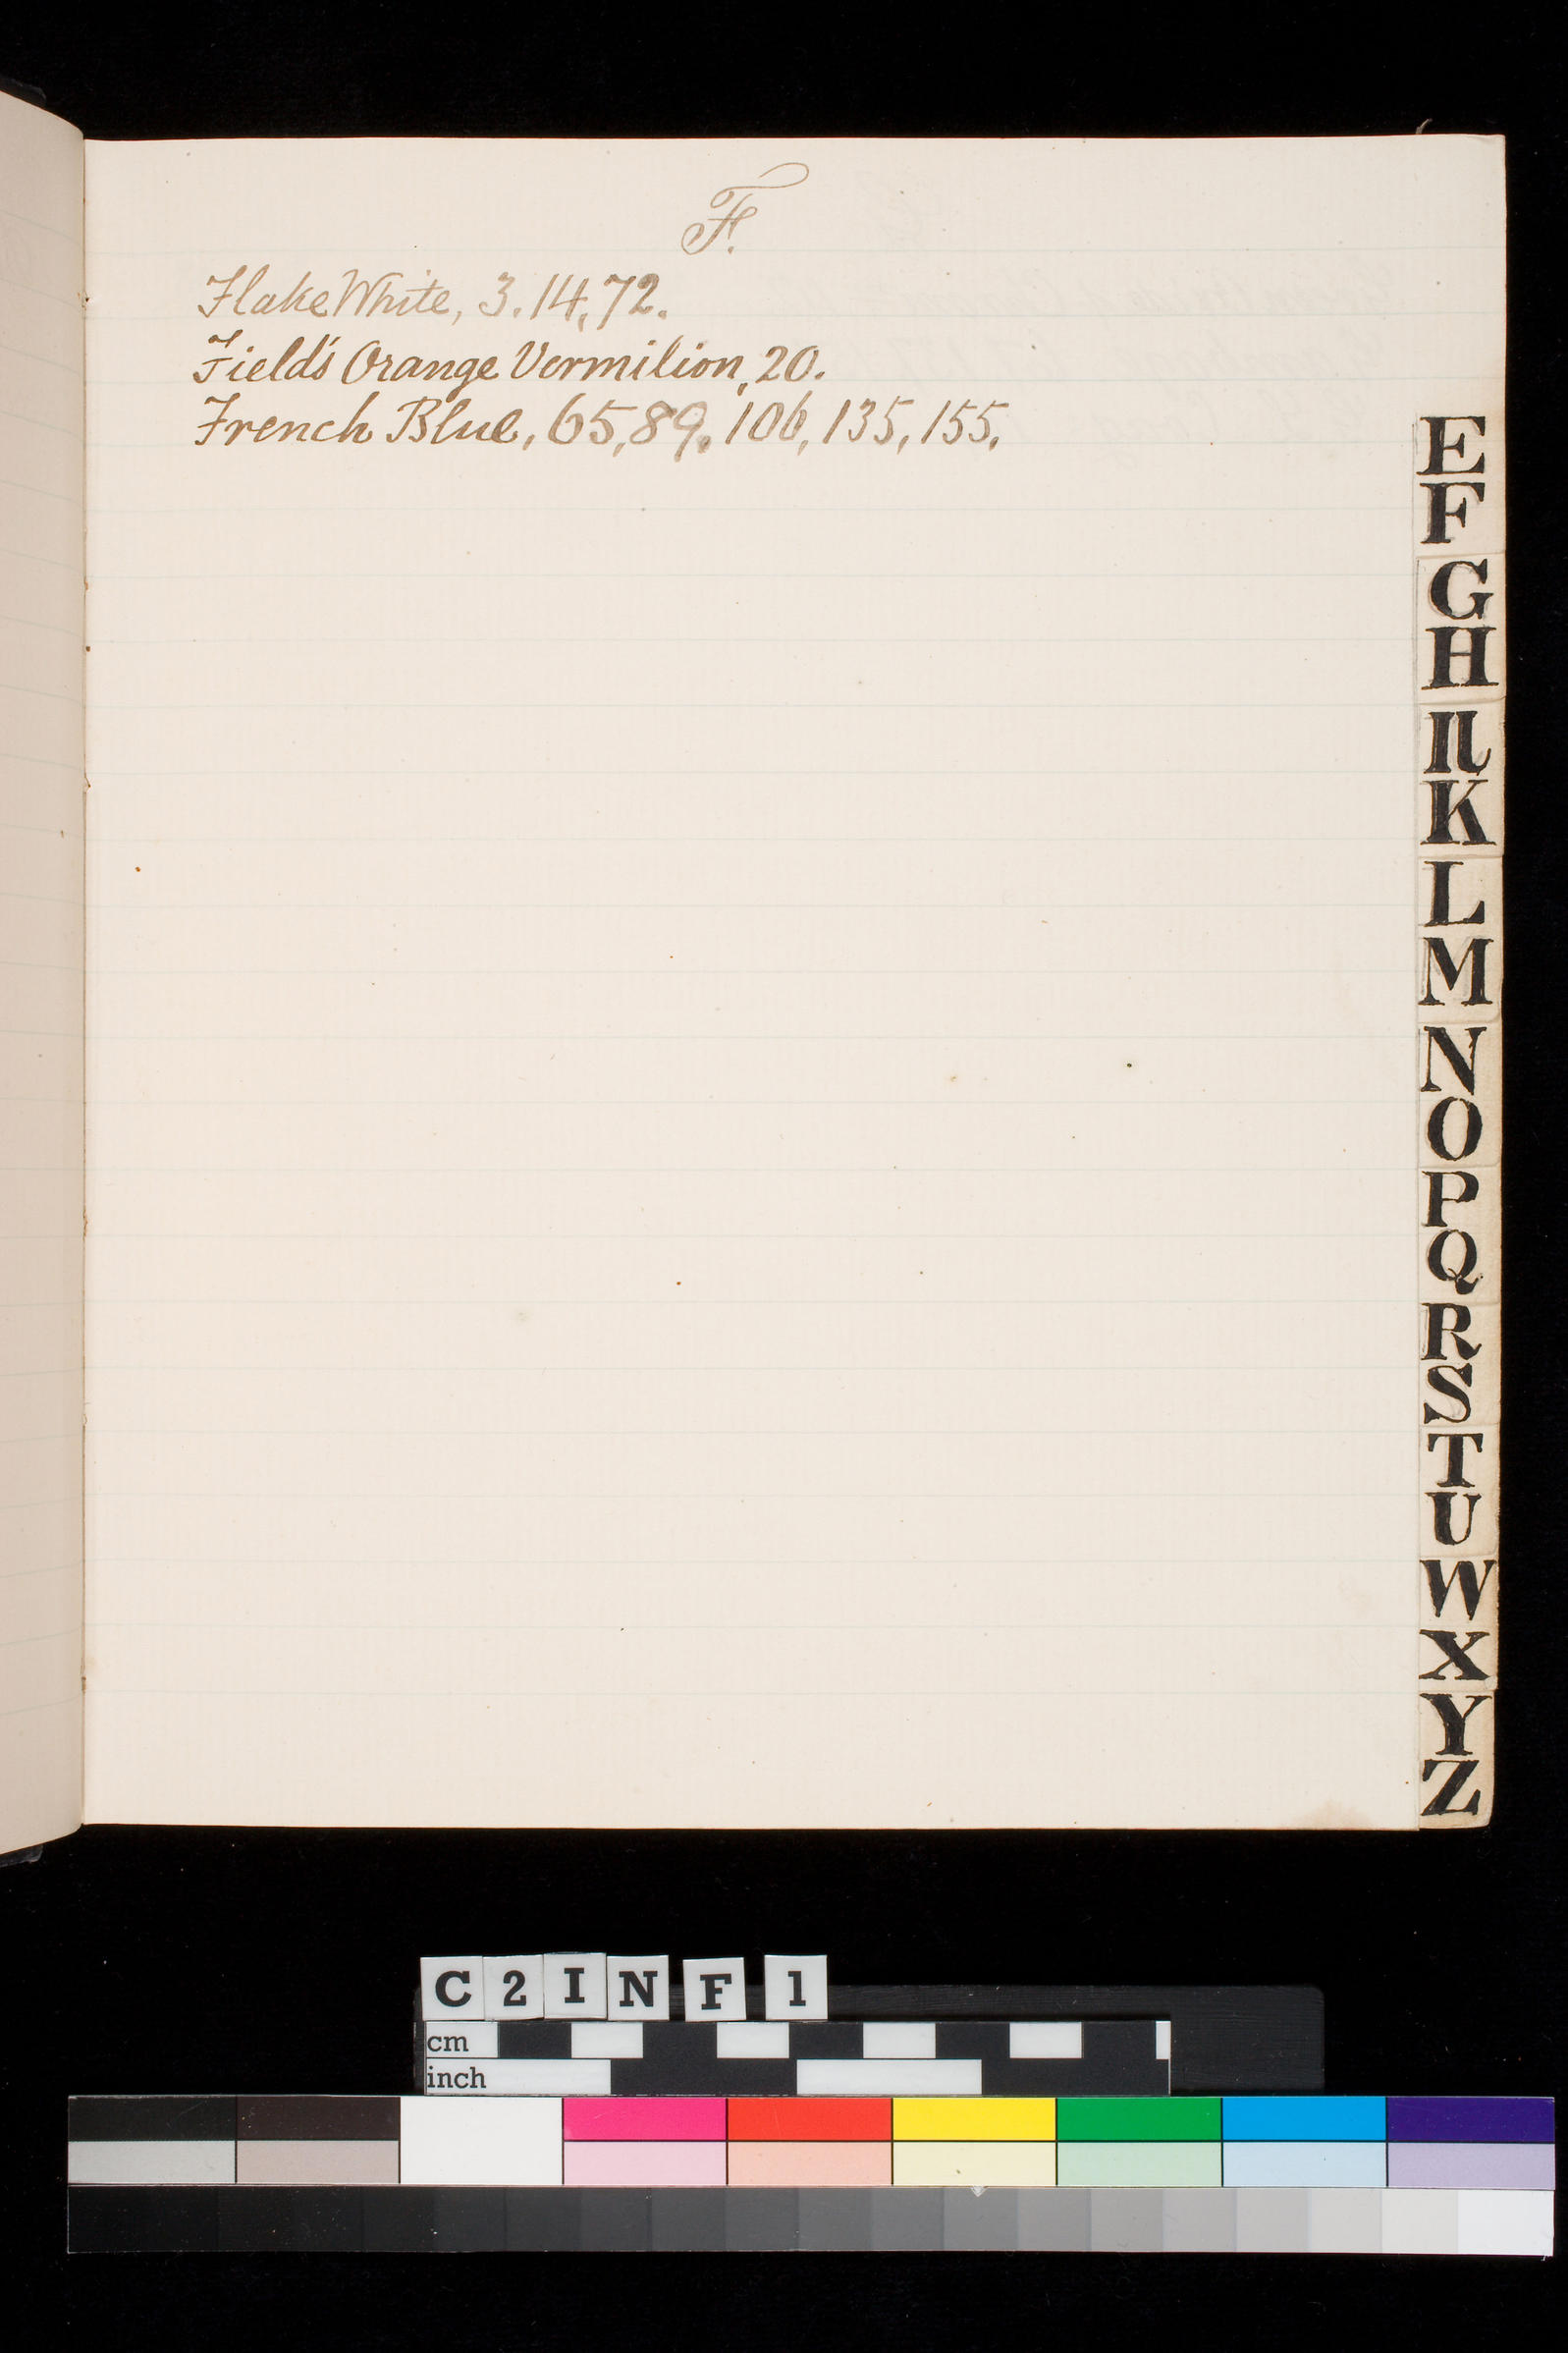 F.
Flake White, 3. 14, 72.
Field's Orange Vermilion, 20.
French Blue, 65, 89, 106, 135, 155.
E
F
G
H
IJ
K
L
M
N
O
P
Q
R
S
T
U
W
X
Y
Z
C2IN F 1
cm
inch